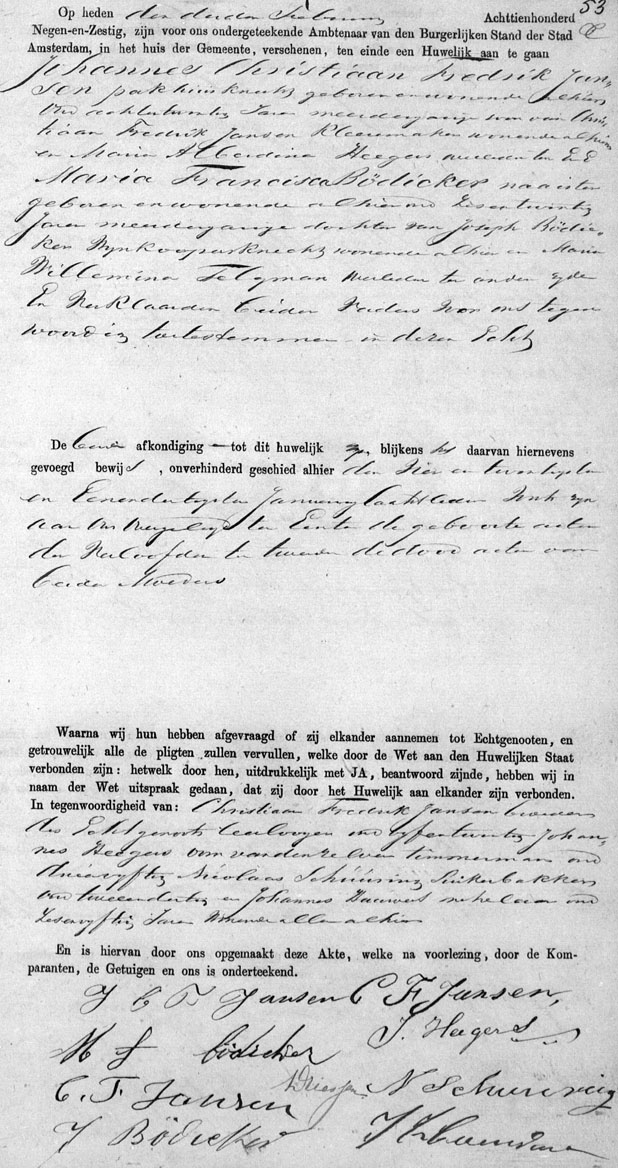 53
Op heden den derden Februarij Achttienhonderd
Negen-en-Zestig, zijn voor ons ondergeteekende Ambtenaar van den Burgerlijken Stand der Stad
Amsterdam, in het huis der Gemeente, verschenen, ten einde een Huwelijk aan te gaan
Johannes Christiaan Fredrik Jan-
sen pakhuisknecht geboren en wonende alhier
oud achtentwintig Jaren meerderjarige zoon van Chris
tiaan Fredrik Jansen Kleermaker wonende alhier
en Maria Alberdina Heegers overleden ter E Z
Maria Francisca Bödicker naaister
geboren en wonende alhier oud Zesentwintig
Jaren meerderjarige dochter van Joseph Bödic-
ker Wijnkoopersknecht wonende alhier en Maria
Willemina Telgman overleden ter andere zijde
En verklaarden beider Vaders voor ons tegen
woordig toetestemmen in dezen Echt
De beide afkondiging tot dit huwelijk zijn, blijkens het daarvan hiernevens
gevoegd bewijs, onverhinderd geschied alhier den Vier en twintigsten
en Eenendertigsten Januarij laatstleden Ook zijn
aan ons overgelegd ten Eerste de geboorte acten
der Verloofden ten tweede de dood acten van
beider Moeders
Waarna wij hun hebben afgevraagd of zij elkander aannemen tot Echtgenooten, en
getrouwelijk alle de pligten zullen vervullen, welke door de Wet aan den Huwelijken Staat
verbonden zijn: hetwelk door hen, uitdrukkelijk met JA, beantwoord zijnde, hebben wij in
naam der Wet uitspraak gedaan, dat zij door het Huwelijk aan elkander zijn verbonden.
In tegenwoordigheid van: Christiaan Fredrik Jansen broeder
des Echtgenoots oud vijfentwintig Johan-
nes Heegers oom van denzelven timmerman oud
drieenvijftig Nicolaas Schüüring Suikerbakker
oud tweeendertig en Johannes oud
Zesenvijftig Jaren wonende allen alhier
En is hiervan door ons opgemaakt deze Akte, welke na voorlezing, door de Kom-
paranten, de Getuigen en ons is onderteekend.
J C F Jansen C F Jansen,
J. Heegers
M F Bödicker
Driessen N Schuuring
C. F. Jansen
J Bödicker